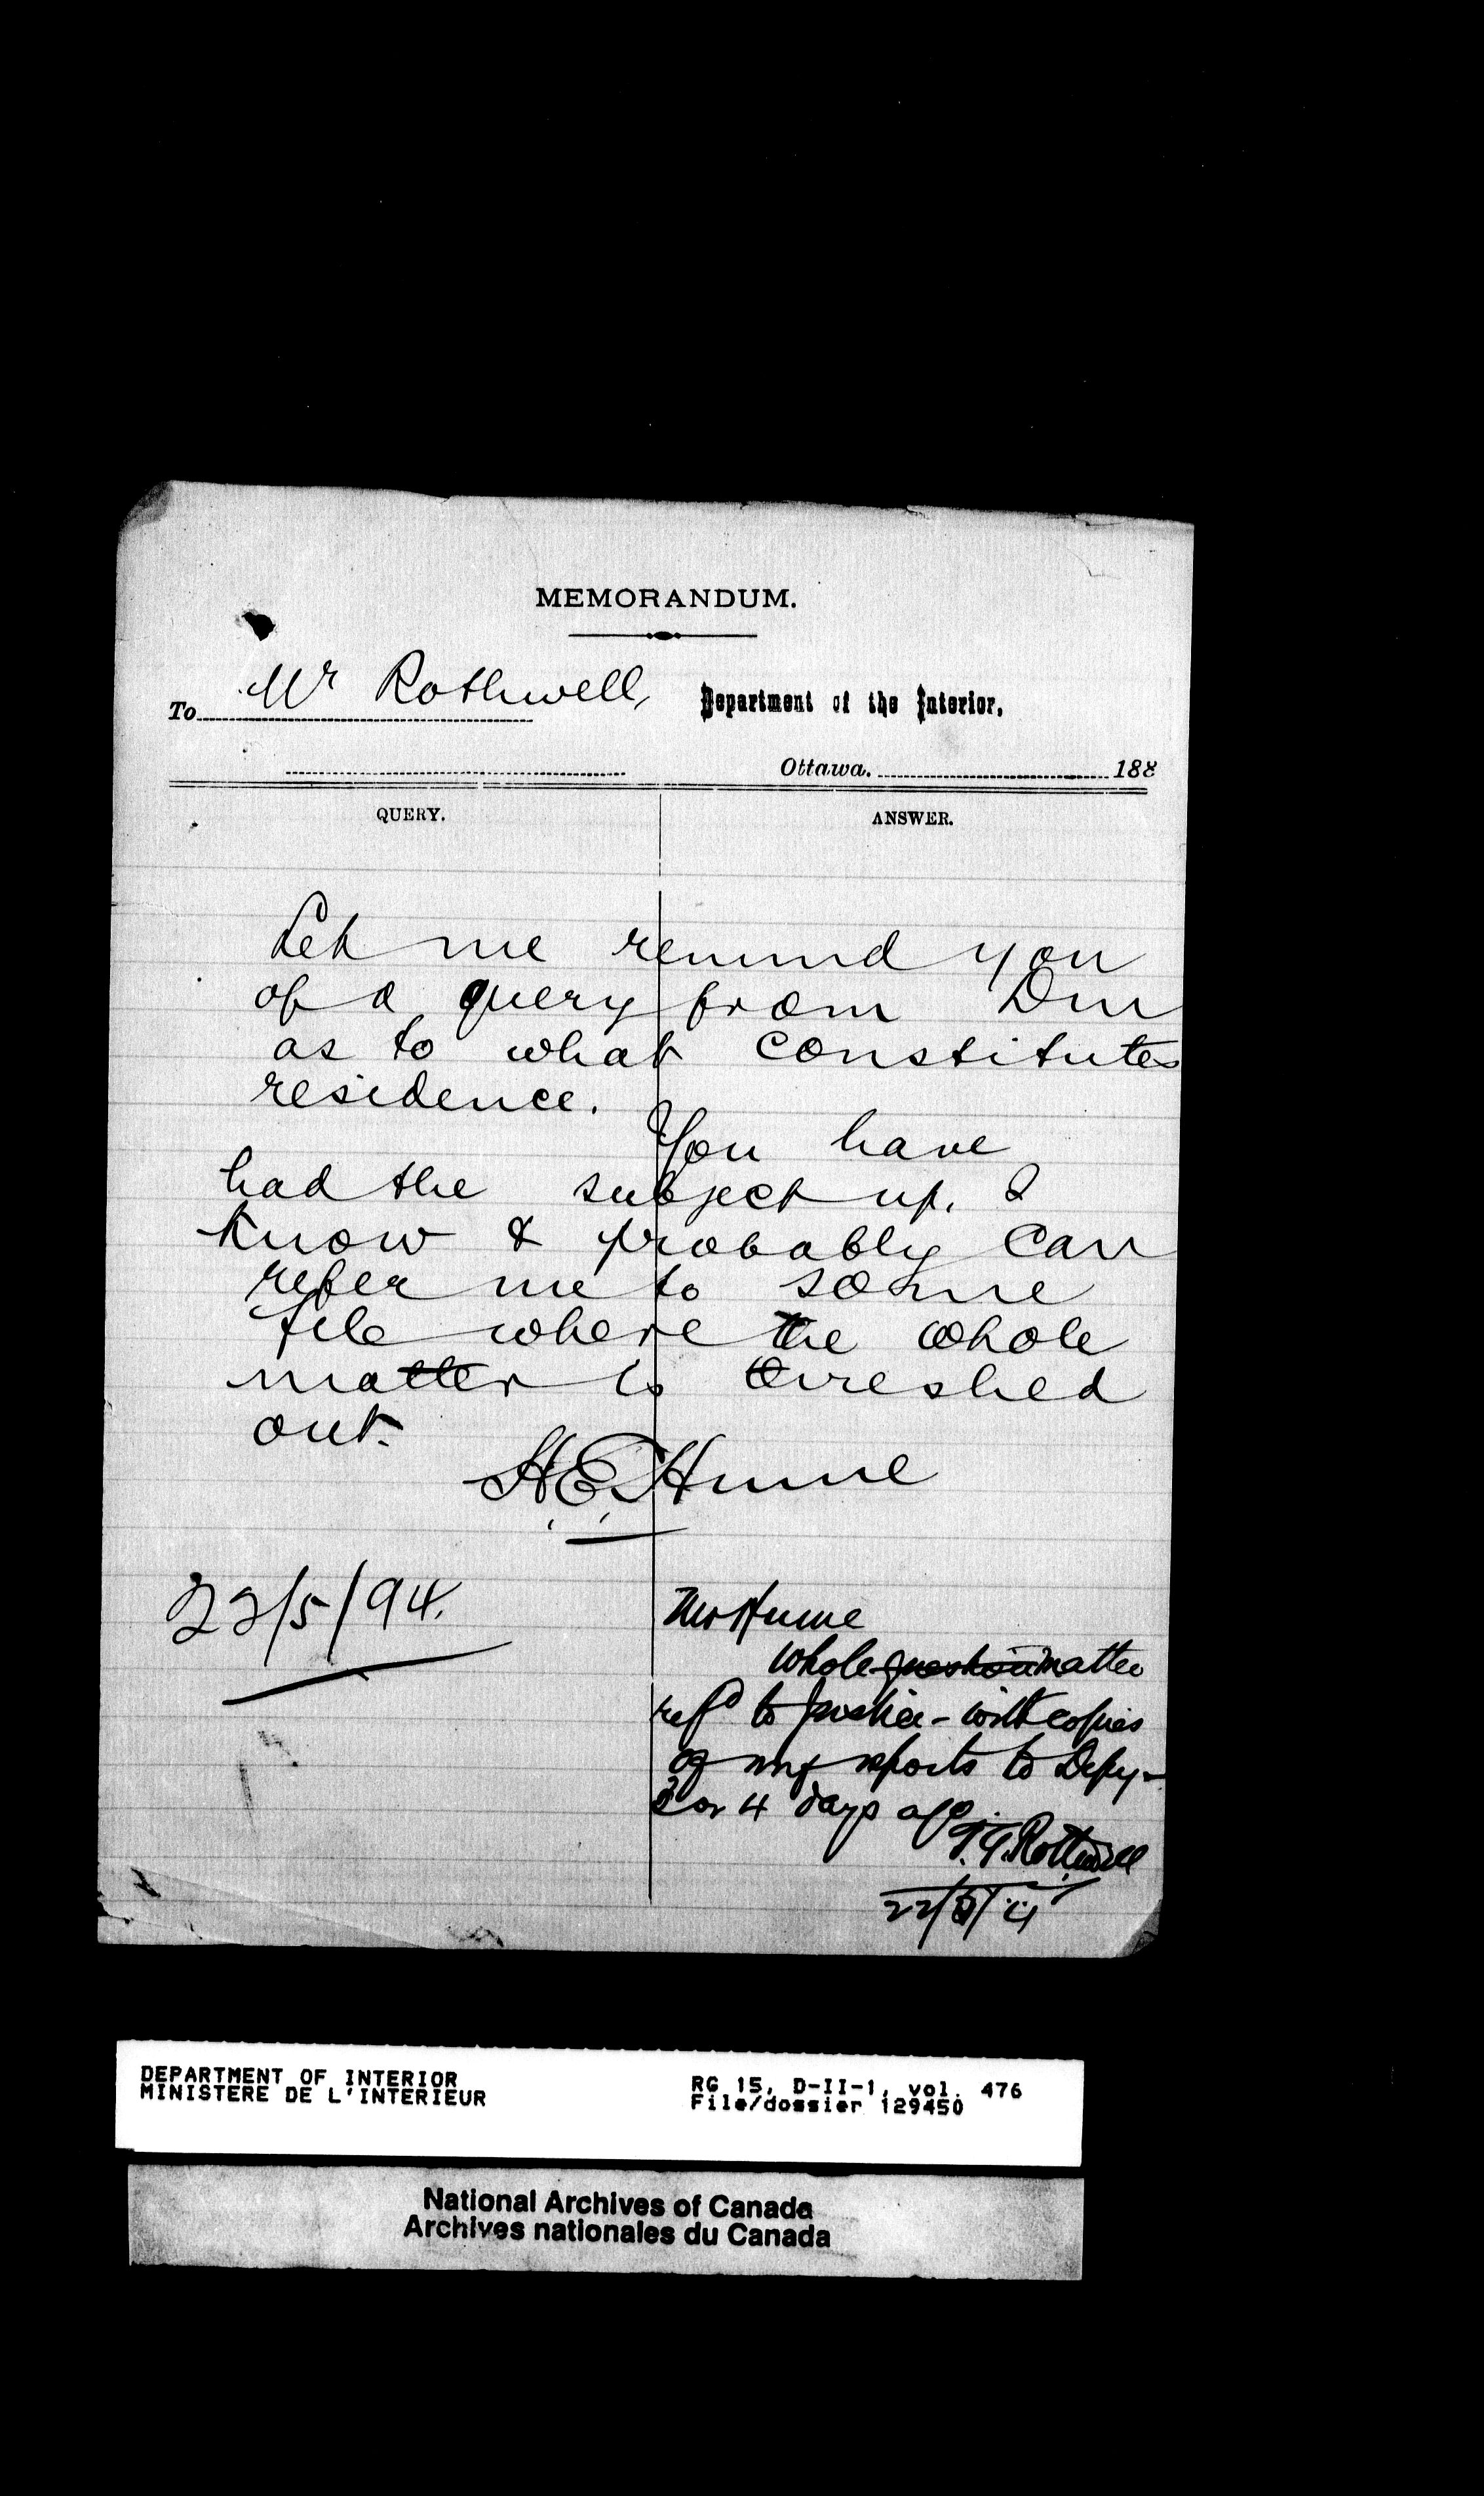 MEMORANDUM.
To Mr Rothwell, Department of the Interior,
Ottawa. 188
QUERY. ANSWER.
Let me remind you
of a query from Dm
as to what constitutes
residence.
You have
had the subject up, I
know & probably can
refer me to some
file where the whole
matter is threshed
out.
H.E. Hume
22/5/94.
Mr Hume
Whole question matter
refd to Justice - with copies
of my reports to Depy -
3 or 4 days ago.
T.G. Rothwell
22/5/94
DEPARTMENT OF INTERIOR
MINISTERE DE L'INTERIEUR
RG 15, D-II-1, vol. 476
File/dossier 129450
National Archives of Canada
Archives nationales du Canada